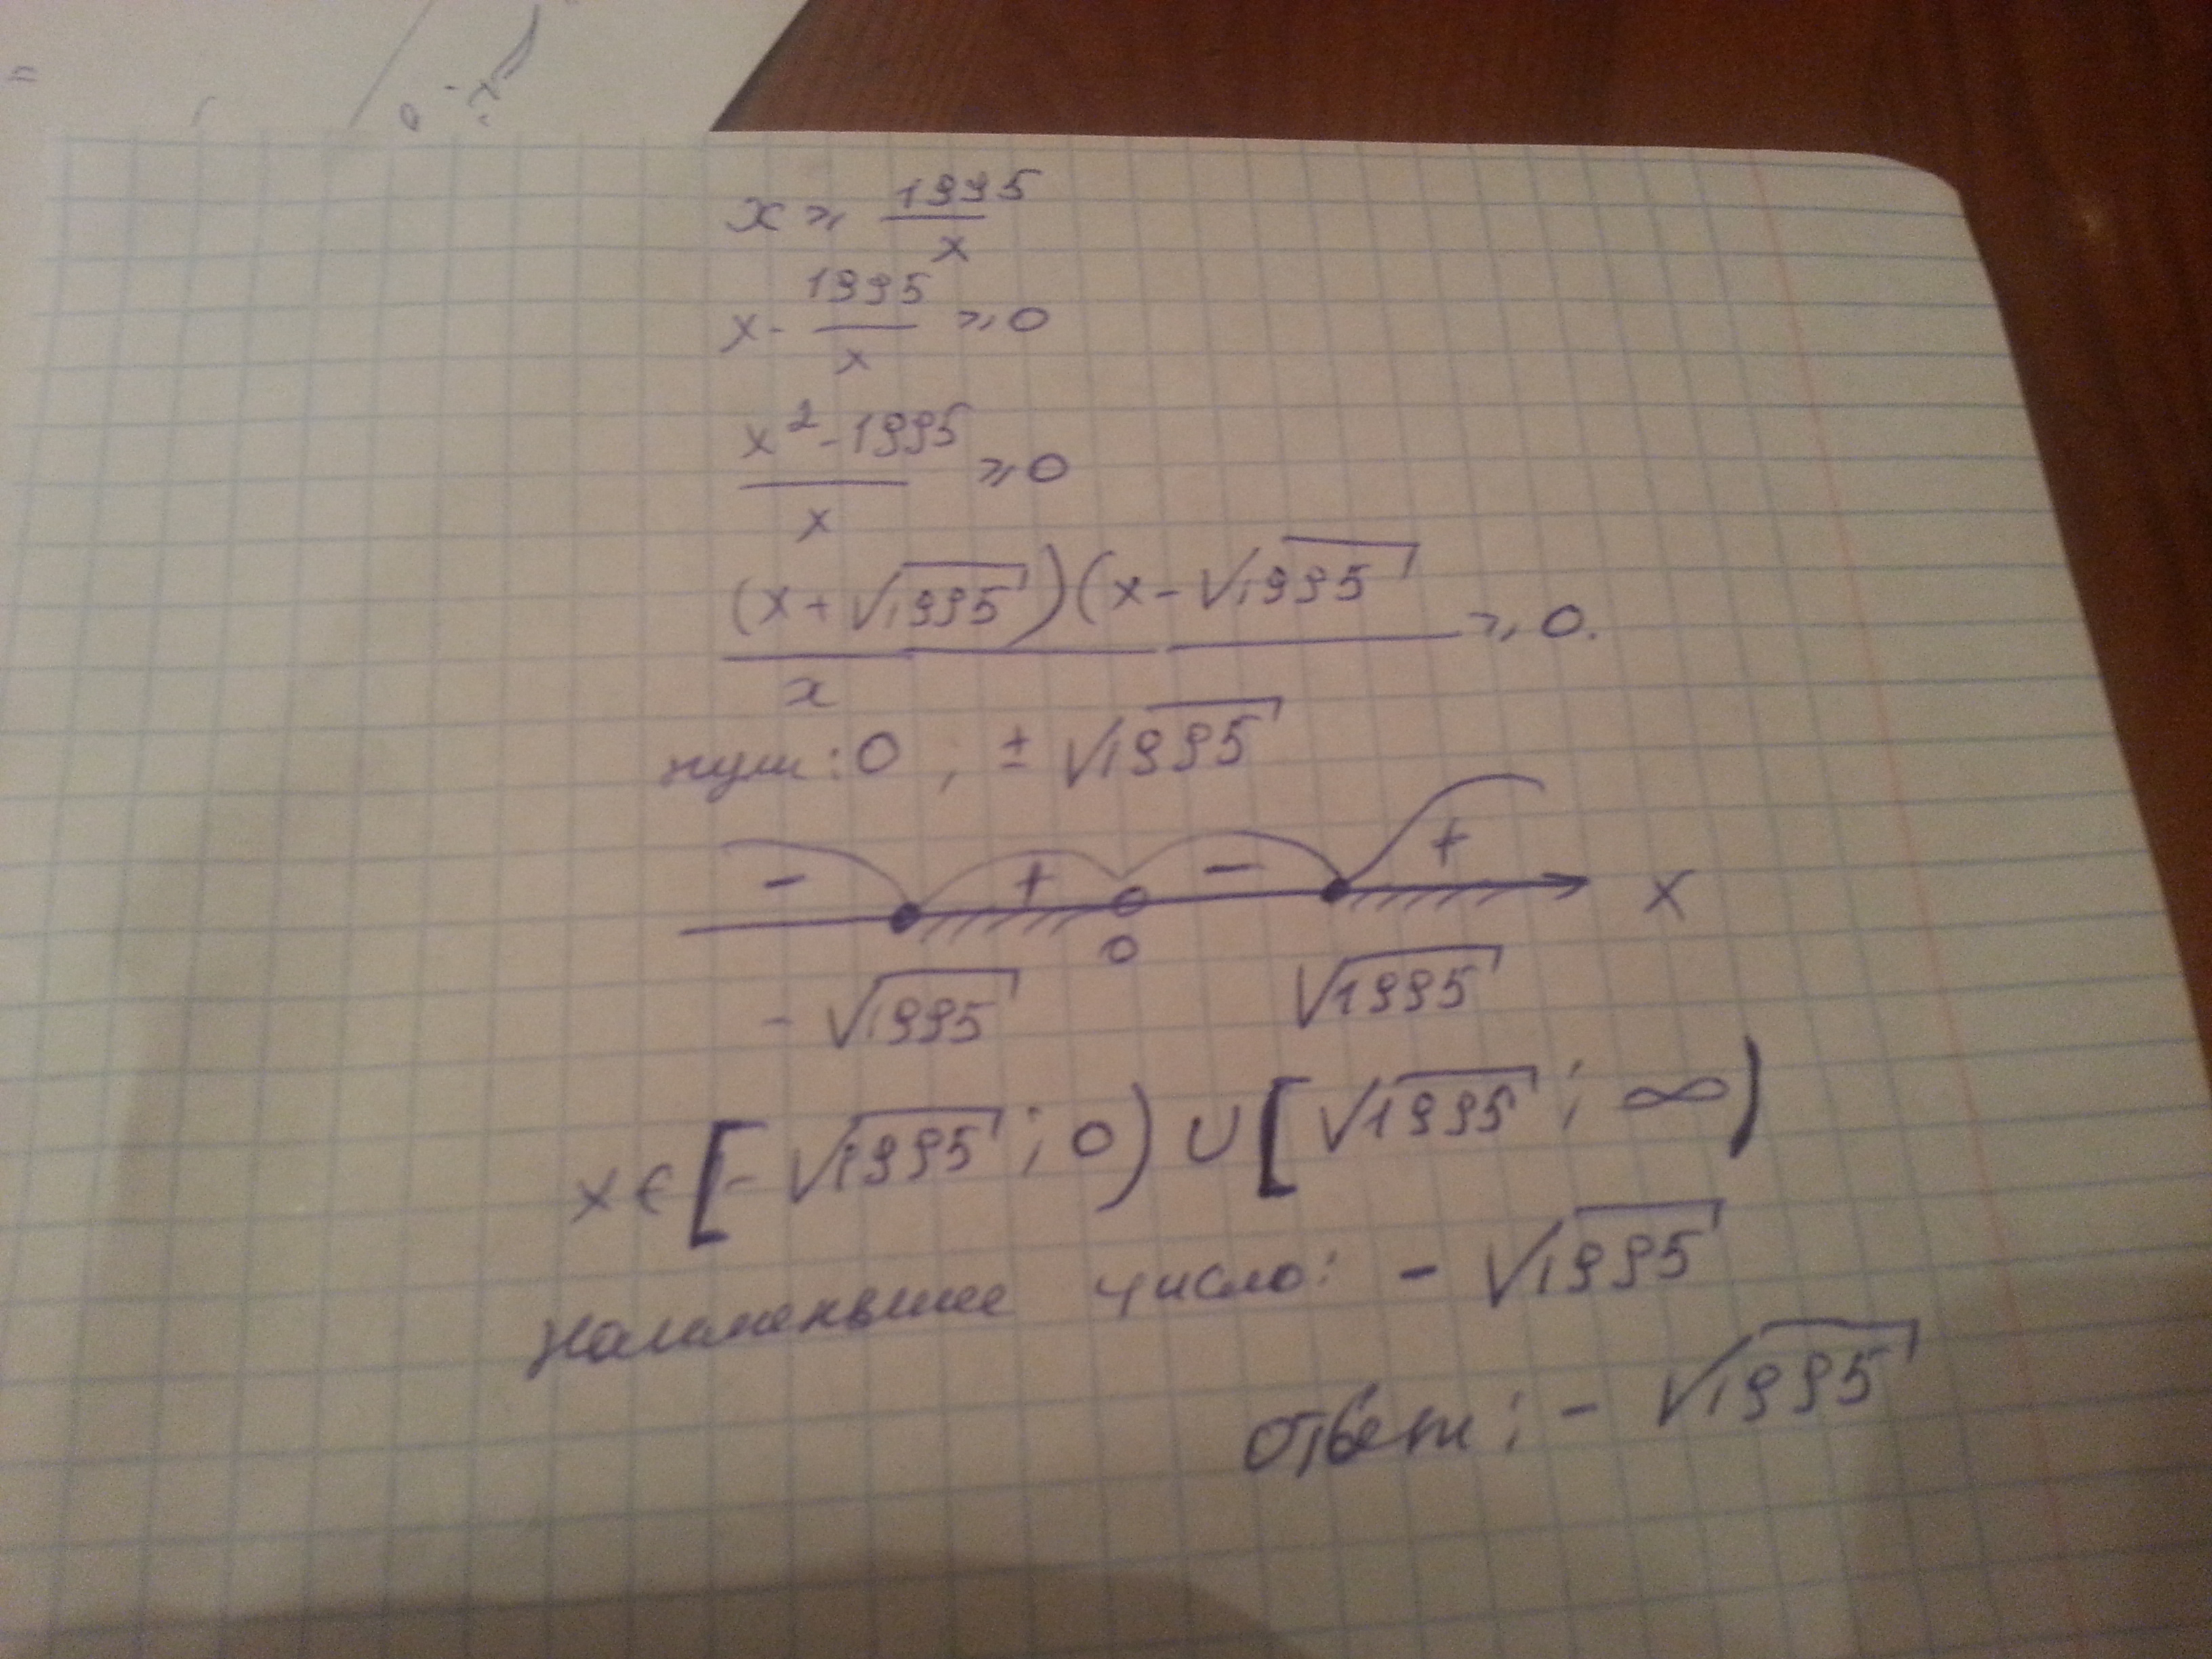 x ⩾ 1995/x
x - 1995/x ⩾ 0
(x² - 1995)/x ⩾ 0
(x + √1995)(x - √1995)/x ⩾ 0.
нули: 0 ; ± √1995
- + - +
-√1995 0 √1995 x
x ∈ [-√1995 ; 0) ∪ [√1995 ; ∞)
Наименьшее число: - √1995
Ответ: - √1995